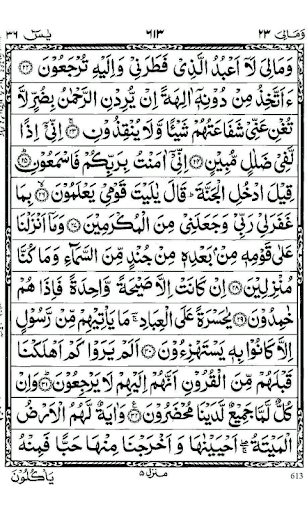 وَمَالِیَ ٢٣ ٦١٣ یٰسٓ ٣٦
وَمَالِیَ لَاۤ اَعْبُدُ الَّذِیْ فَطَرَنِیْ وَاِلَیْهِ تُرْجَعُوْنَ ﴿٢٢﴾
ءَاَتَّخِذُ مِنْ دُوْنِهٖۤ اٰلِهَةً اِنْ یُّرِدْنِ الرَّحْمٰنُ بِضُرٍّ لَّا
تُغْنِ عَنِّیْ شَفَاعَتُهُمْ شَیْـًٔا وَّلَا یُنْقِذُوْنِ ﴿٢٣﴾ اِنِّیْۤ اِذًا
لَّفِیْ ضَلٰلٍ مُّبِیْنٍ ﴿٢٤﴾ اِنِّیْۤ اٰمَنْتُ بِرَبِّكُمْ فَاسْمَعُوْنِ ﴿٢٥﴾
قِیْلَ ادْخُلِ الْجَنَّةَ ؕ قَالَ یٰلَیْتَ قَوْمِیْ یَعْلَمُوْنَ ﴿٢٦﴾ بِمَا
غَفَرَلِیْ رَبِّیْ وَجَعَلَنِیْ مِنَ الْمُكْرَمِیْنَ ﴿٢٧﴾ وَمَاۤ اَنْزَلْنَا
عَلٰی قَوْمِهٖ مِنْۢ بَعْدِهٖ مِنْ جُنْدٍ مِّنَ السَّمَآءِ وَمَا كُنَّا
مُنْزِلِیْنَ ﴿٢٨﴾ اِنْ كَانَتْ اِلَّا صَیْحَةً وَّاحِدَةً فَاِذَا هُمْ
خٰمِدُوْنَ ﴿٢٩﴾ یٰحَسْرَةً عَلَی الْعِبَادِ ۚ مَا یَاْتِیْهِمْ مِّنْ رَّسُوْلٍ
اِلَّا كَانُوْا بِهٖ یَسْتَهْزِءُوْنَ ﴿٣٠﴾ اَلَمْ یَرَوْا كَمْ اَهْلَكْنَا
قَبْلَهُمْ مِّنَ الْقُرُوْنِ اَنَّهُمْ اِلَیْهِمْ لَا یَرْجِعُوْنَ ﴿٣١﴾ وَاِنْ
كُلٌّ لَّمَّا جَمِیْعٌ لَّدَیْنَا مُحْضَرُوْنَ ﴿٣٢﴾ وَاٰیَةٌ لَّهُمُ الْاَرْضُ
الْمَیْتَةُ ۖۚ اَحْیَیْنٰهَا وَاَخْرَجْنَا مِنْهَا حَبًّا فَمِنْهُ
یَاْكُلُوْنَ منزل ٥ 613